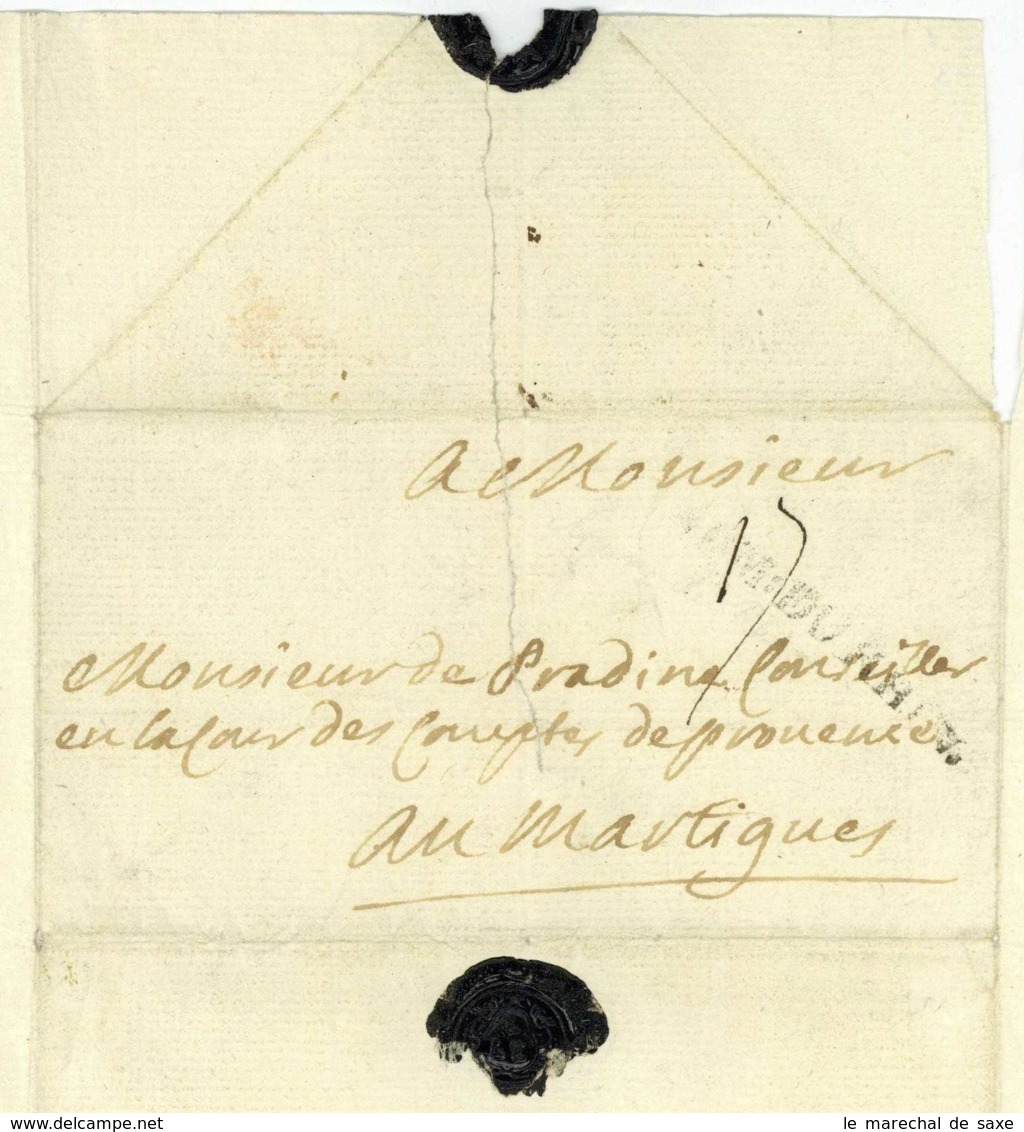 A Monsieur
17
Monsieur de Pradine Conseiller
en la Cour des Comptes de provence
Au Martigues
delcampe.net
le marechal de saxe